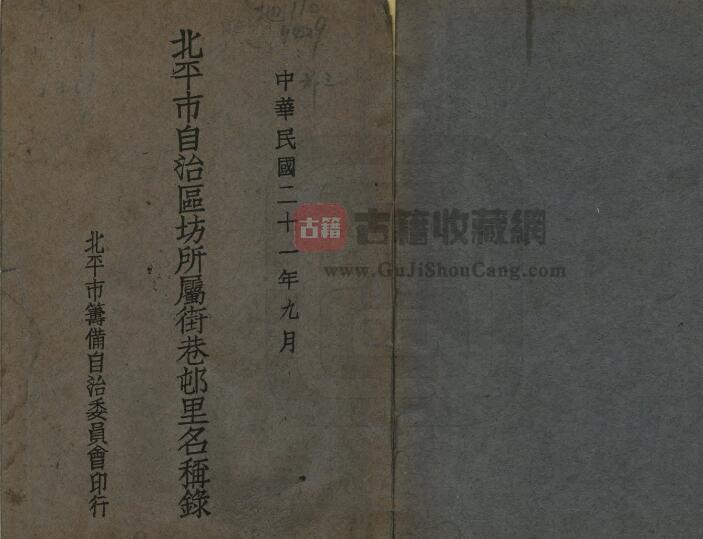 中華民國二十一年九月
北平市自治區坊所屬街巷邨里名稱錄
北平市籌備自治委員會印行
古籍
古籍收藏網
www.GuJiShouCang.com